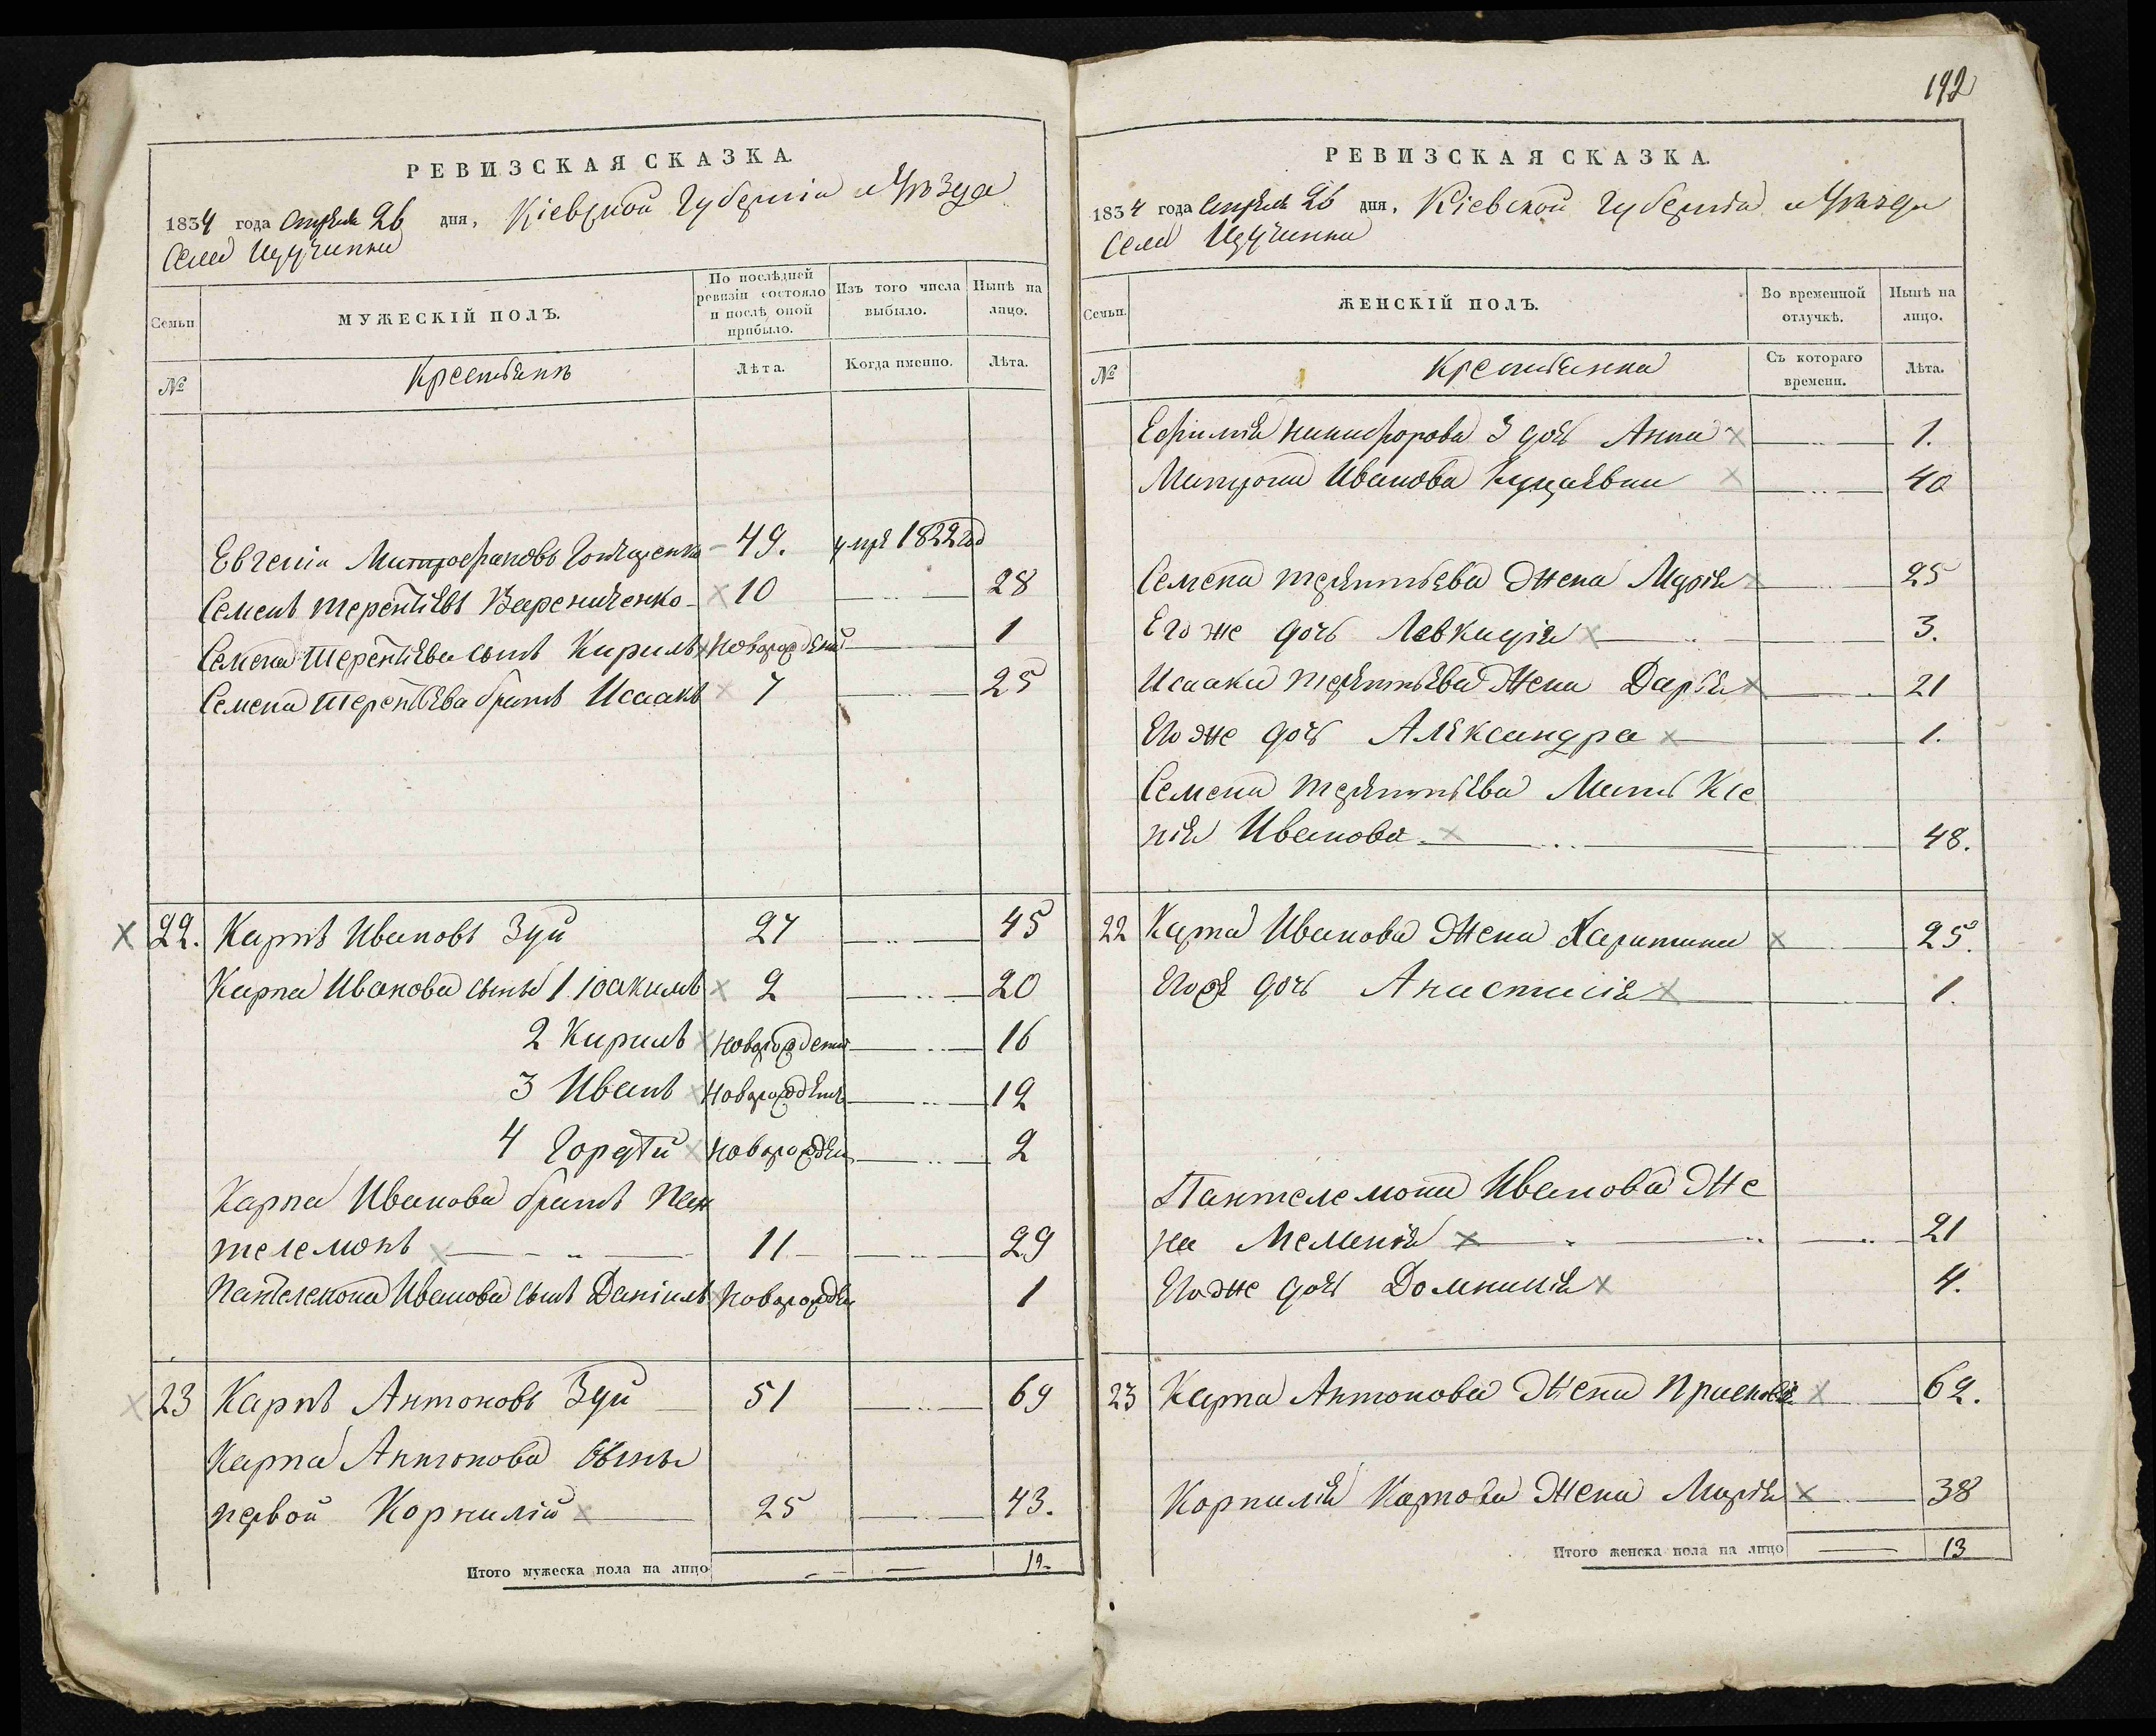 РЕВИЗСКАЯ СКАЗКА.
1834 года Апреля 26 дня, Кіевской Губерніи и Уѣзда
Села Щучинки
Семьи
МУЖЕСКІЙ ПОЛЪ.
По послѣдней ревизіи состояло и послѣ оной прибыло.
Изъ того числа выбыло.
Нынѣ на лицо.
№
Крестьянъ
Лѣта.
Когда именно.
Лѣта.
Евгеній Митрофановъ Гончаренко 49. умре 1822 год
Семенъ Терентіевъ Варениченко 10 28
Семена Терентіева сынъ Кирилъ новорожденъ 1
Семена Терентьева братъ Исаакъ 7 25
22. Карпъ Ивановъ Зуй 27 45
Карпа Иванова сыны 1 іоакимъ 2 20
2 Кирилъ новорожденъ 16
3 Иванъ новорожденъ 12
4 Гордѣй новорожден 2
Карпа Иванова братъ Пан
телемонъ 11 29
Пантелемона Иванова сынъ Даніилъ новорожден 1
23 Карпъ Антоновъ Зуй 51 69
Карпа Антонова сыны
первой Корнилій 25 43.
Итого мужеска пола на лицо 12
192
РЕВИЗСКАЯ СКАЗКА.
1834 года Апреля 26 дня, Кіевской Губерніи и Уѣзда
Села Щучинки
Семьи.
ЖЕНСКІЙ ПОЛЪ.
Во временной отлучкѣ.
Нынѣ на лицо.
№
Крестьянки
Съ котораго времени.
Лѣта.
Ефимія Никифорова 3 дочь Анна 1.
Матрона Иванова 40
Семена терентьева Жена Марія 25
Его же дочь Левкадія 3.
Исаака терентьева Жена Дарья 21
Его же дочь Александра 1.
Семена терентьева Мать Ксе
нія Иванова 48.
22 Карпа Иванова Жена Харитина 25.
Егоже дочь Анастасія 1.
Пантелемона Иванова Же
на Меланія 21
Егоже дочь Домникія 4.
23 Карпа Антонова Жена Прасковія 62.
Корнилія Карпова Жена Марія 38
Итого женска пола на лицо 13